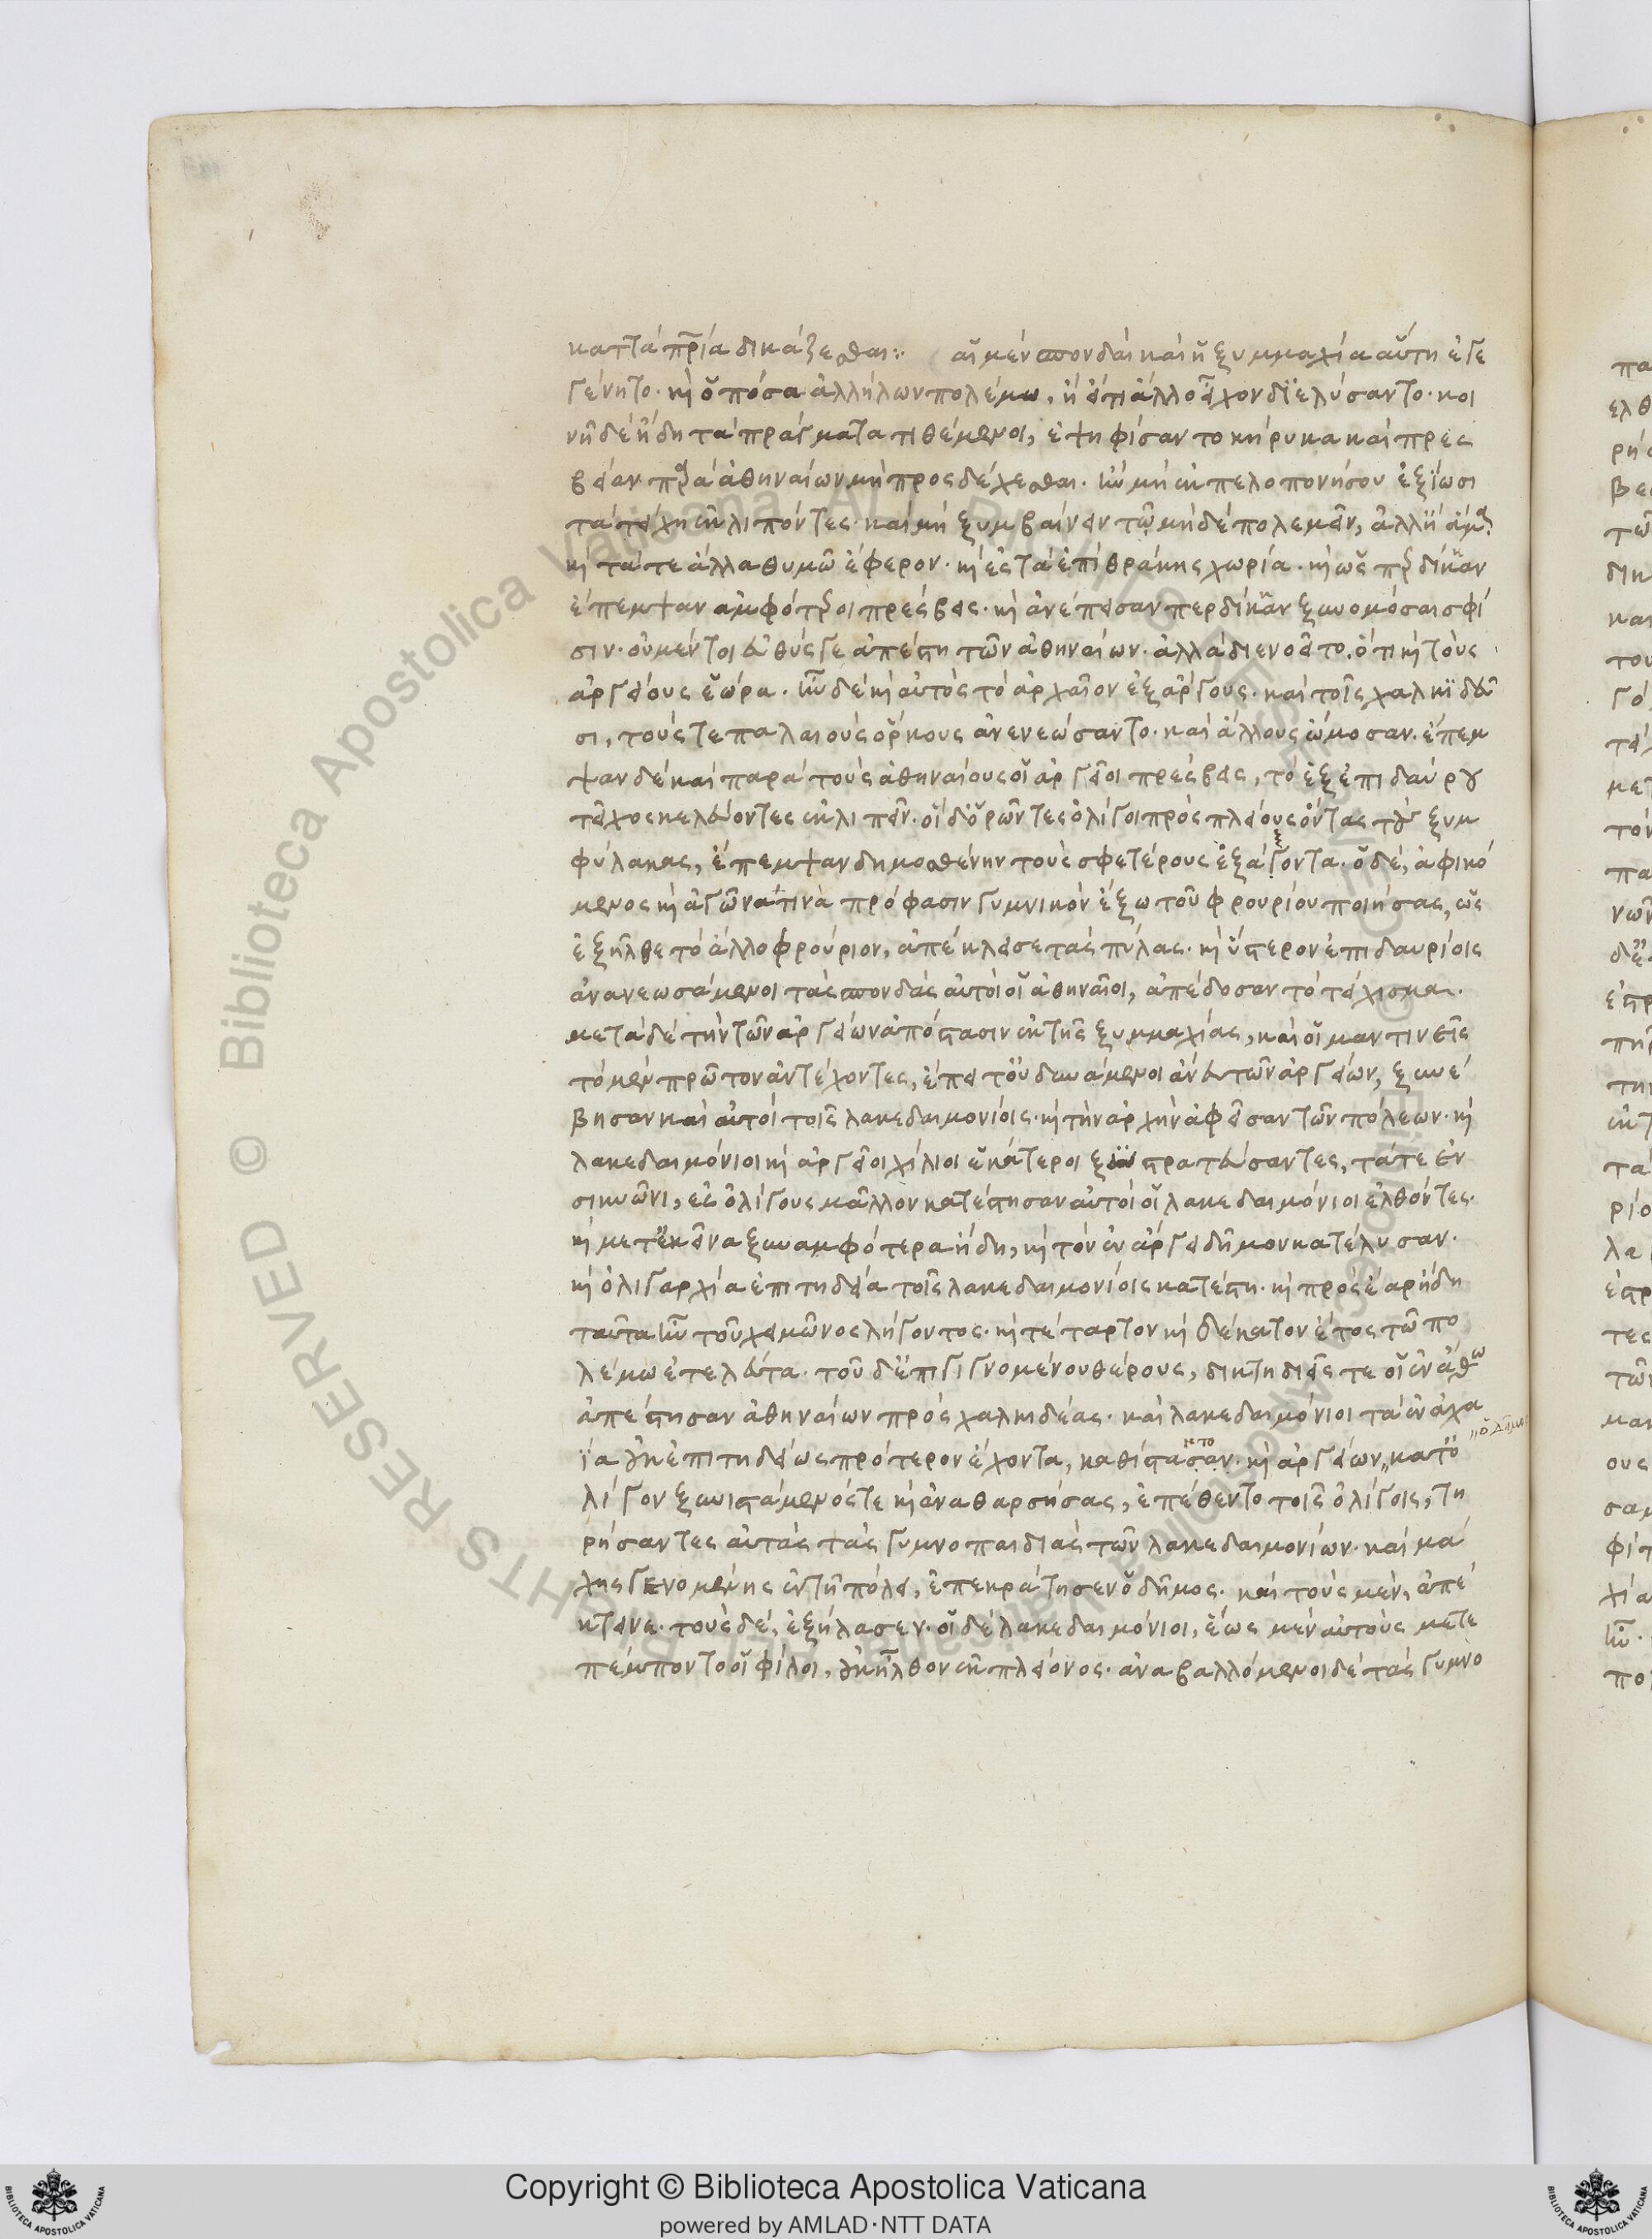 καττὰ πάτρια δικάζεσθαι:· αἱ μὲν σπονδαὶ καὶ ἡ ξυμμαχία αὕτη ἐγε
γένητο· καὶ ὁπόσα ἀλλήλων πολέμω, ἢ εἴ τι ἄλλο εἶχον διελύσαντο· κοι
νῆ δὲ ἤδη τὰ πράγματα τιθέμενοι, ἐψηφίσαντο κήρυκα καὶ πρεσ
βείαν παρὰ ἀθηναίων μὴ προσδέχεσθαι· ἢν μὴ ἐκ πελοπονήσου ἐξίωσι
τὰ τείχη ἐκλιπόντες· καὶ μὴ ξυμβαίνειν τῶ μηδὲ πολεμεῖν, ἀλλ' ἢ ἅμα·
καὶ τά τε ἄλλα θυμῶ ἔφερον· καὶ ἐς τὰ ἐπὶ θράκης χωρία· καὶ ὡς περδίκκαν
ἔπεμψαν ἀμφότεροι πρέσβεις· καὶ ἀνέπεισαν περδίκκαν ξυνομόσαι σφί
σιν· οὐ μέντοι εὐθύς γε ἀπέστη τῶν ἀθηναίων· ἀλλὰ διενοεῖτο. ὅτι καὶ τοὺς
ἀργείους ἑώρα· ἦν δὲ καὶ αὐτὸς τὸ ἀρχαῖον ἐξ ἄργους· καὶ τοῖς χαλκιδεῦ
σι, τούς τε παλαιοὺς ὅρκους ἀνενεώσαντο· καὶ ἄλλους ὤμοσαν. ἔπεμ
ψαν δὲ καὶ παρὰ τοὺς ἀθηναίους οἱ ἀργεῖοι πρέσβεις, τὸ ἐξ ἐπιδαύρου
τεῖχος κελεύοντες ἐκλιπεῖν· οἱ δ' ὁρῶντες ὀλίγοι πρὸς πλείους ὄντας τοὺς ξυμ
φύλακας, ἔπεμψαν δημοσθένην τοὺς σφετέρους ἐξάξοντα. ὁ δὲ, ἀφικό
μενος καὶ ἀγῶνά τινα πρόφασιν γυμνικὸν ἔξω τοῦ φρουρίου ποιήσας, ὡς
ἐξῆλθε τὸ ἄλλο φρούριον, ἀπέκλεισε τὰς πύλας· καὶ ὕστερον ἐπιδαυρίοις
ἀνανεωσάμενοι τὰς σπονδὰς αὐτοὶ οἱ ἀθηναῖοι, ἀπέδοσαν τὸ τείχισμα.
μετὰ δὲ τὴν τῶν ἀργείων ἀπόστασιν ἐκ τῆς ξυμμαχίας, καὶ οἱ μαντινεῖς
τὸ μὲν πρῶτον ἀντέχοντες, ἔπειτ' οὐ δυνάμενοι ἄνευ τῶν ἀργείων, ξυνέ
βησαν καὶ αὐτοὶ τοῖς λακεδαιμονίοις· καὶ τὴν ἀρχὴν ἀφεῖσαν τῶν πόλεων· καὶ
λακεδαιμόνιοι καὶ ἀργεῖοι χίλιοι ἑκάτεροι ξυστρατεύσαντες, τά τε ἐν
σικυῶνι, ἐς ὀλίγους μᾶλλον κατέστησαν αὐτοὶ οἱ λακεδαιμόνιοι ἐλθόντες·
καὶ μετ' ἐκεῖνα ξυναμφότερα ἤδη, καὶ τὸν ἐν ἄργει δῆμον κατέλυσαν·
καὶ ὀλιγαρχία ἐπιτηδεία τοῖς λακεδαιμονίοις κατέστη· καὶ πρὸς ἔαρ ἤδη
ταῦτα ἦν τοῦ χειμῶνος λήγοντος· καὶ τέταρτον καὶ δέκατον ἔτος τῶ πο
λέμω ἐτελεύτα· τοῦ δ' ἐπιγιγνομένου θέρους, δικτηδιεῖς τε οἱ ἐν ἄθω
ἀπέστησαν ἀθηναίων πρὸς χαλκιδέας· καὶ λακεδαιμόνιοι τὰ ἐν ἀχα
ΐα οὐκ ἐπιτηδείως πρότερον ἔχοντα, καθίστασαν· καὶ ἀργείων ὁ δῆμος κατ' ὀ
λίγον ξυνιστάμενός τε καὶ ἀναθαρσήσας, ἐπέθεντο τοῖς ὀλίγοις, τη
ρήσαντες αὐτὰς τὰς γυμνοπαιδιὰς τῶν λακεδαιμονίων· καὶ μά
χης γενομένης ἐν τῆ πόλει, ἐπεκράτησεν ὁ δῆμος· καὶ τοὺς μὲν, ἀπέ
κτεινε· τοὺς δὲ, ἐξήλασεν· οἱ δὲ λακεδαιμόνιοι, ἕως μὲν αὐτοὺς μετε
πέμποντο οἱ φίλοι, οὐκ ἦλθον ἐκ πλείονος· ἀναβαλλόμενοι δὲ τὰς γυμνο
Copyright © Biblioteca Apostolica Vaticana
powered by AMLAD·NTT DATA